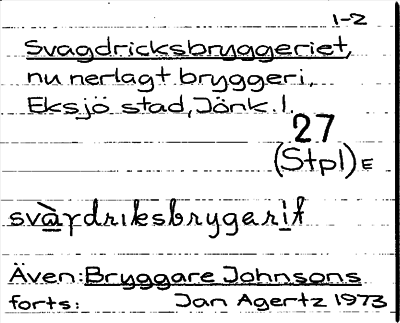 1-2
Svagdricksbryggeriet,
nu nerlagt bryggeri,
Eksjö stad, Jönk. l.
27
(Stpl) E
svàgdriksbrygarit
Även: Bryggare Johnsons
forts: Jan Agertz 1973